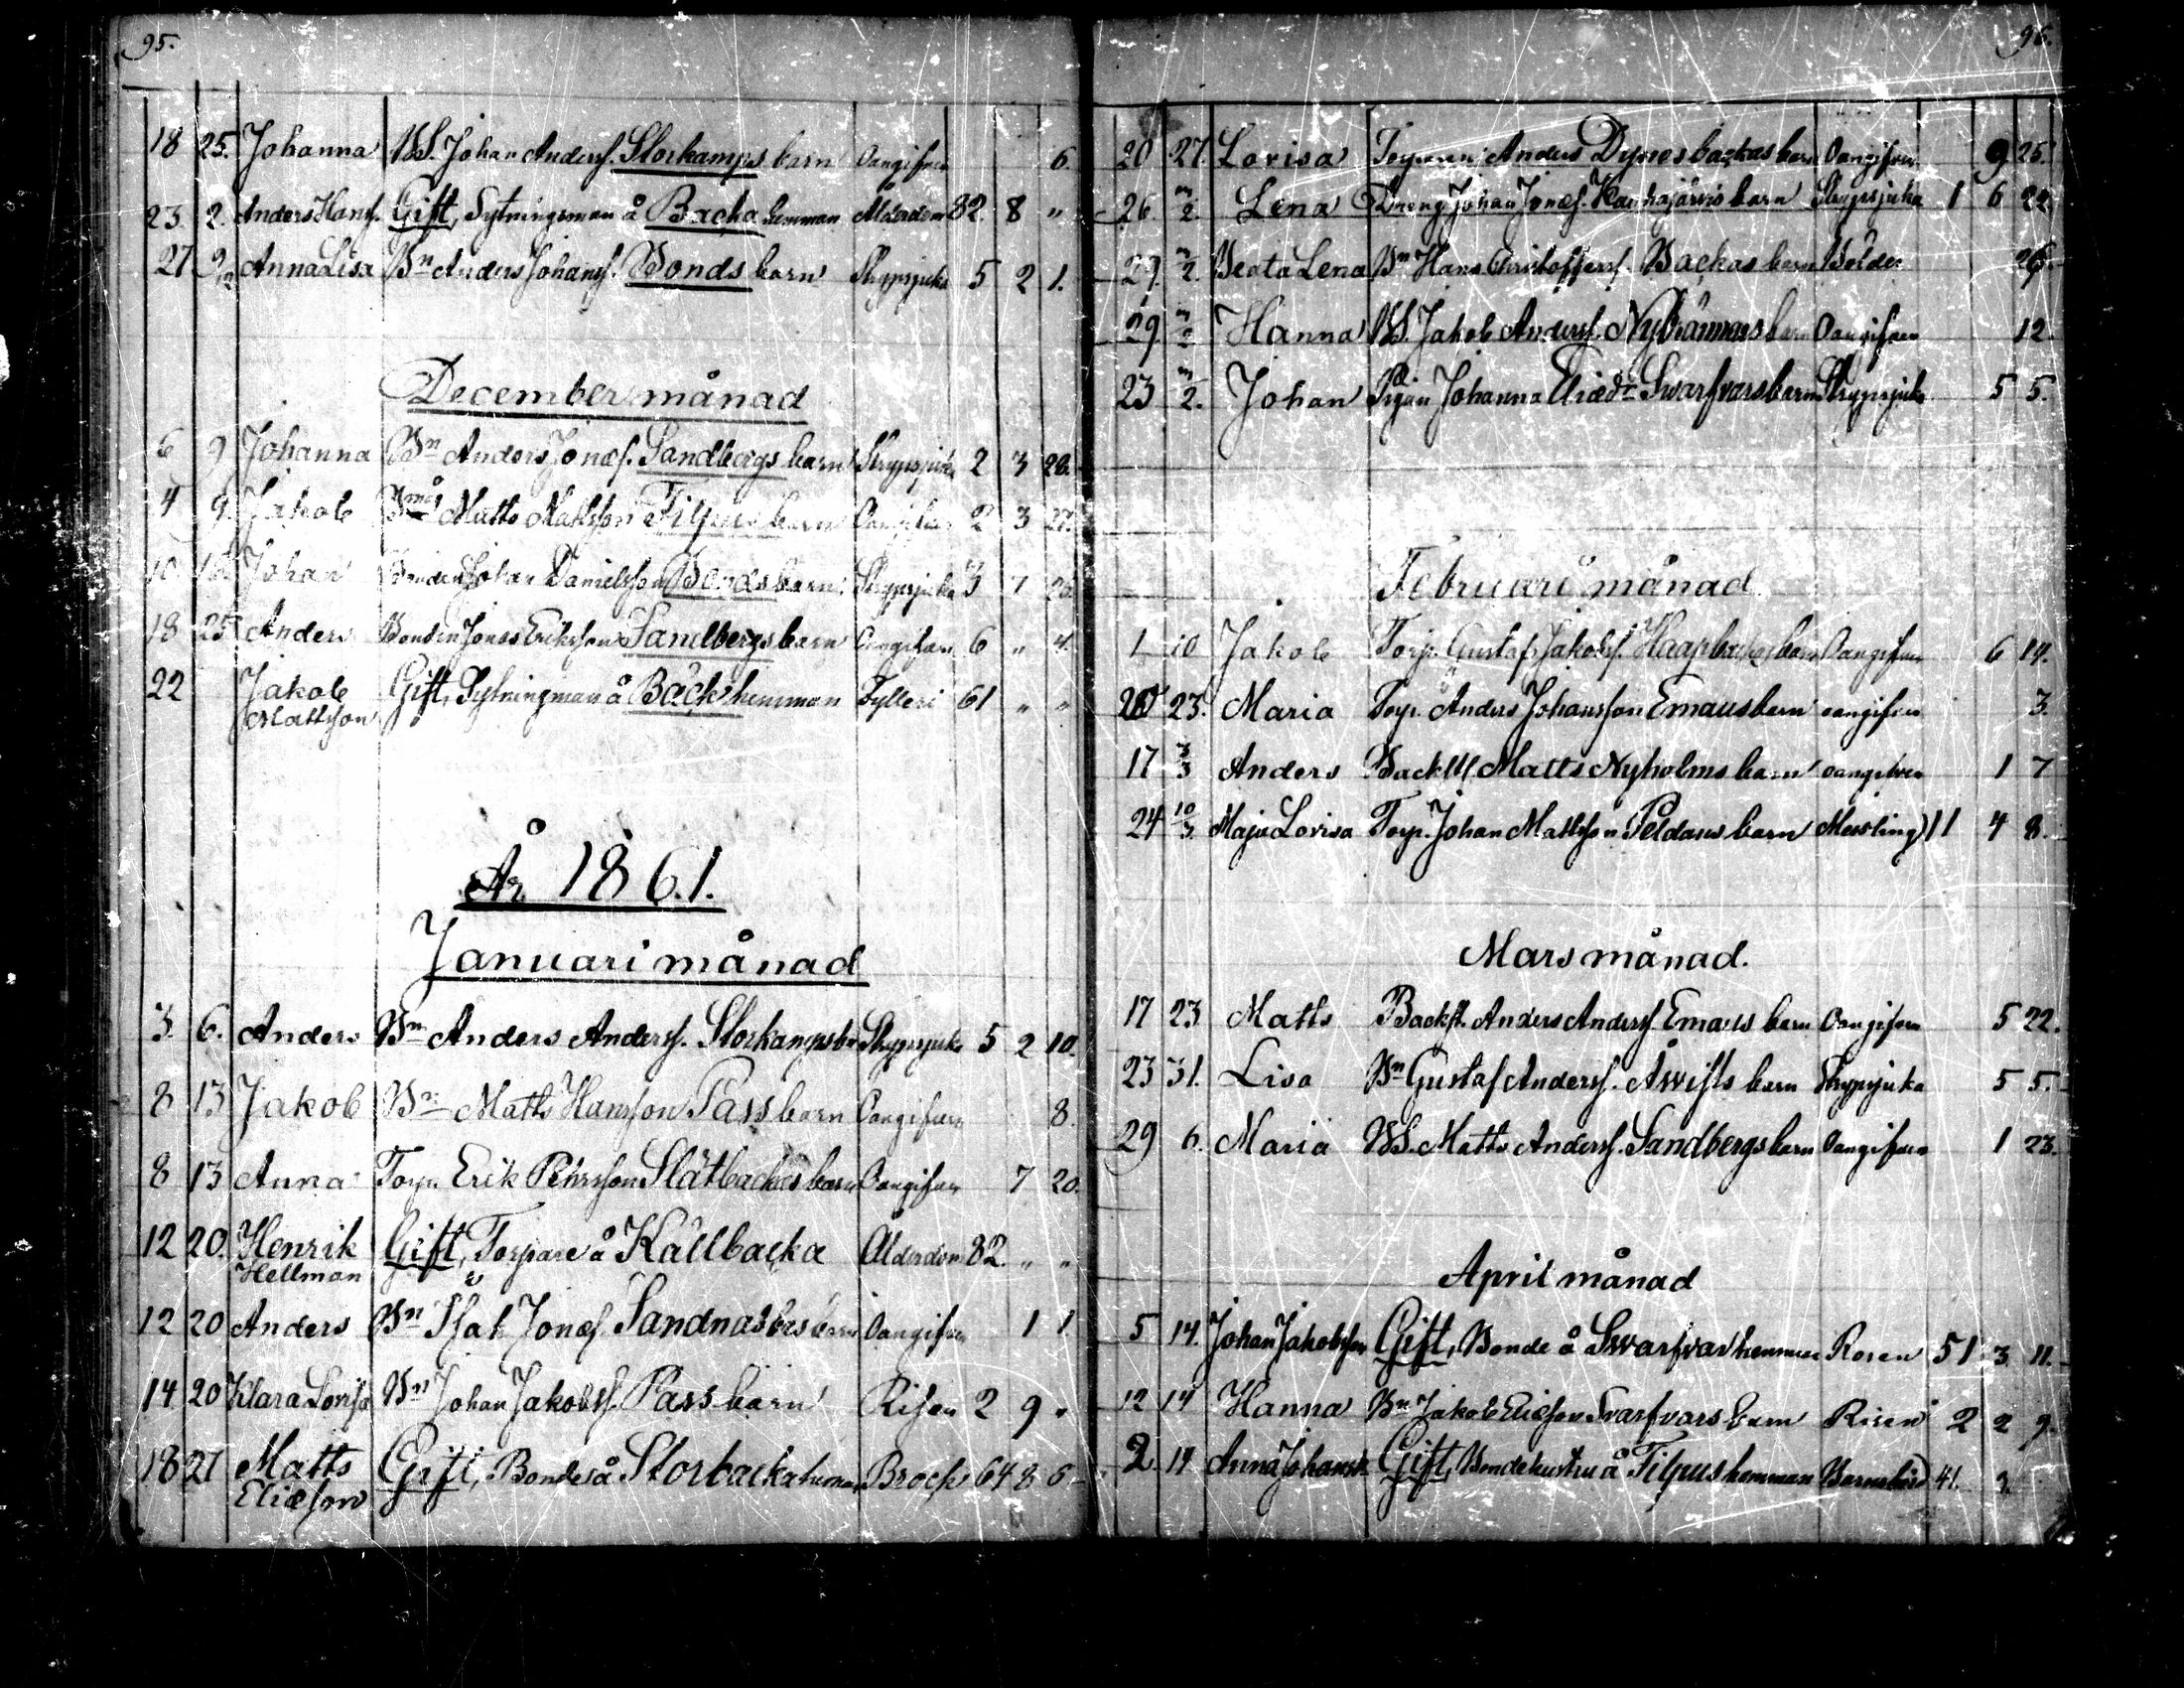 95.
18 25. Johanna BS. Johan Anderss. Storkamps barn Oangifven 6.
23. 2. Anders Hanss. Gift, Sytningsman å Backa hemman Ålderdom 82. 8 "
27 9/12 Anna Lisa Bn Anders Johanss. Bonds barn Strypsjuka 5 2 1.
December månad
6 9 Johanna Bn Anders Jonæs. Sandbergs barn Strypsjuka 2 3 28.
4 9. Jakob Matts Mattsson Filpus barn Oangifven 2 3 27.
10. Johan Bonden Johan Danielsson Bonds barn Strypsjuka 3 7
18 25 Anders Bonden Jonas Eriksson Sandbergs barn Oangifven 6 " 4.
22 Jakob Gift, Sytningman å Back hemman Fylleri 61 " "
Mattsson
År 1861.
Januari månad
3. 6. Anders Bn Anders Anderss. Storkamps bn Strypsjuka 5 2 10.
8 13 Jakob Bn Matts Hansson Pass barn Oangifven 8.
8 13 Anna Torp. Erik Pehrsson Slätbackas barn Oangifven 7 20.
12 20. Henrik Gift, Torpare å Källbacka Ålderdom 82. " "
Hellman
12 20 Anders Bn Isak Jonæs. Sandnäsbas barn Oangifven 1 1
14 20 Klara Lovisa Bn Johan Jakobss. Pass barn Risen 2 9 "
18 27 Matts Gift, Bonde å Storbacka heman Brock 64 8
Eliæson
96.
20 27. Lovisa Torparen Anders Dynesbackas barn Oangifven 9 25.
26. 3/2. Lena Dreng. Johan Jonæs. Kauhajärvis barn Strypsjuka 1 6 22.
29. 3/2. Beata Lena Bn Hans Christofferss. Backas barn Bölder
29. 3/2 Hanna BS. Jakob Anderss. barn Oangifven 12.
23 3/2. Johan Pigan Johanna Eliædr Swarfvars barn Strypsjuka 5 5.
Februari månad.
1 10 Jakob Torp. Gustaf Jakobss. Haapbackas barn Oangifven 6 14.
20 23. Maria Torp. Anders Johansson Emaus barn oangifven 3.
17 3/3 Anders Matts Nyholms barn oangifven 1 7
24 10/3. Maja Lovisa Torp. Johan Mattsson barn Messling 11 4 8.
Mars månad.
17 23 Matts Backst. Anders Anderss. Emaus barn Oangifven 5 22.
23 31. Lisa Bn Gustaf Anderss. Åwists barn Strypsjuka 5 5.
29 6. Maria BS. Matts Anderss. Sandbergs barn Oangifven 1 23.
April månad
5 14. Johan Jakobsson Gift, Bonde å Swarfvar hemman Rosen 51 3 11.
12 14 Hanna Bn Jakob Eliæson Svarfvars barn Risen 2 2 9.
2 14 Anna Johansdr Gift, Bondehustru å Filpus hemman Barnsbörd 41. 3.